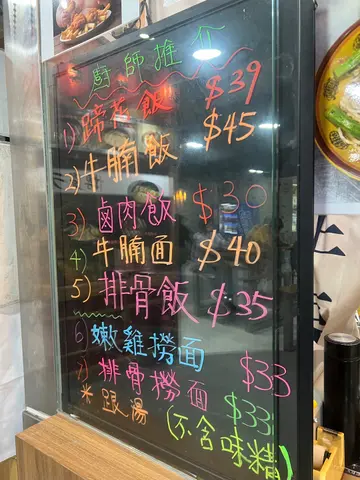 廚師推介
1) 蹄花飯 $39
2) 牛腩飯 $45
3) 鹵肉飯 $30
4) 牛腩面 $40
5) 排骨飯 $35
6) 嫩雞撈面
7) 排骨撈面 $33
米跟湯 $33
(不含味精)